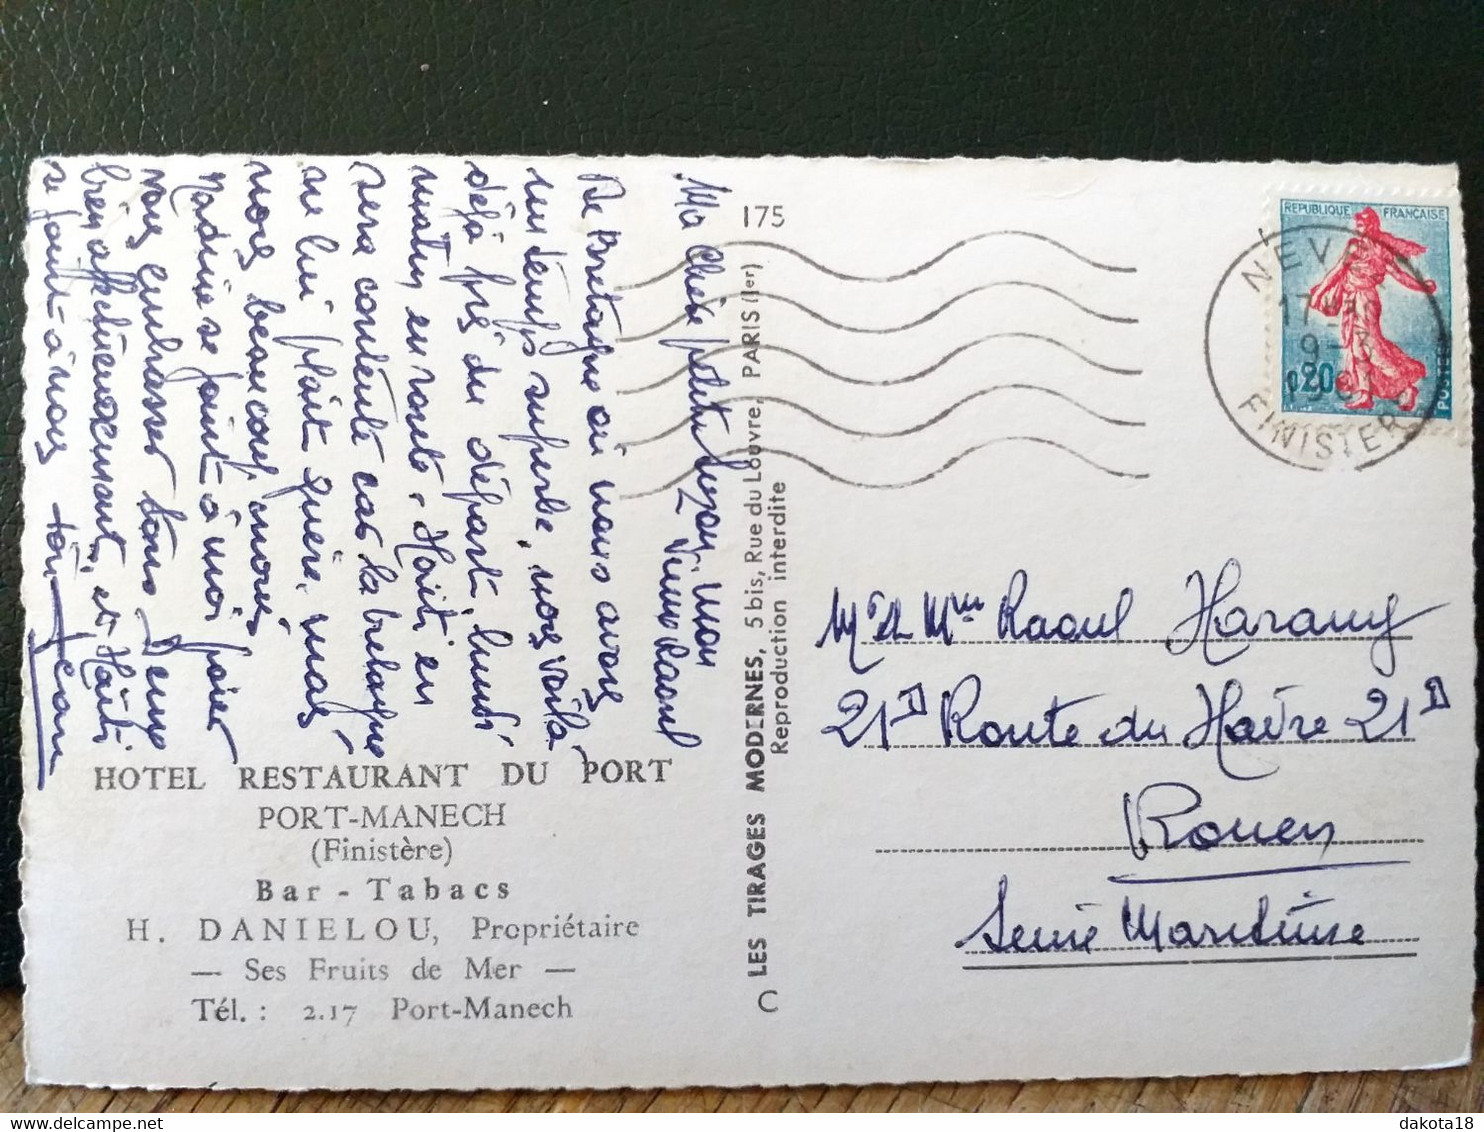 Ma Chère petite Suzon, Mon
Vieux Raoul
De Bretagne où nous avons
un temps superbe, nous voilà
déjà près du départ, lundi
matin en route. Haïti en
sera contente car la bretagne
ne lui plait guère, mais
nous beaucoup nous
Nadine se joint à moi pour
vous embrasser tous Deux
bien affectueusement, et Haïti
se joint à nous Jean
HOTEL RESTAURANT DU PORT
PORT-MANECH
(Finistère)
Bar - Tabacs
H. DANIELOU, Propriétaire
— Ses Fruits de Mer —
Tél. : 2.17 Port-Manech
175
LES TIRAGES MODERNES, 5 bis, Rue du Louvre, PARIS (1er)
Reproduction interdite
C
REPUBLIQUE FRANÇAISE
0,20
POSTES
NEVEZ
17 H
9-3
FINISTERE
Mr et Mme Raoul Harang
21D Route du Havre 21D
Rouen
Seine Maritime
dakota18